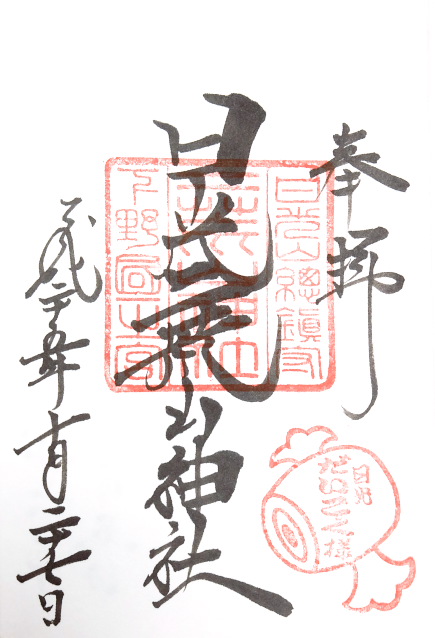 奉拝
日光山總鎮守
日光二荒山神社
二荒山神社
下野國一之宮
平成二十五年
十月二十七日
日光
だいこく様